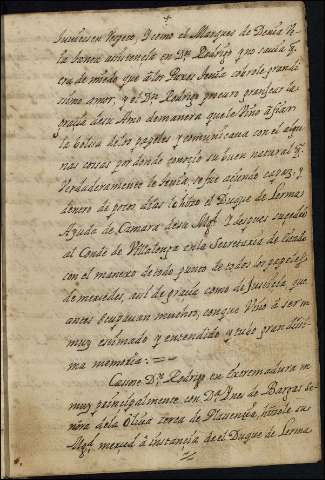 +
la buena asistencia en Dn. Rodrigo que sauia q.
era de miedo que a los Pajes tenia cobrole grandi
simo amor, y el Dn. Rodrigo procuro granjear la
gracia de su Amo demanera que le Vino a fiar
la bolsa de los papeles y comunicaua con el algu
nas cosas por donde conocio su buen natural q.
Verdaderamente le tenia, se fue aciendo capaz, y
dentro de pocos dias le hizo el Duque de Lerma
Ayuda de Camara de su Magd. Y despues sucedio
al Conde de Villalonga en la Secretaria de Estado
con el manexo de todo punto de todos los papeles
de mercedes, asi de gracia como de Justicia que
antes ocupauan muchos, conque Vino a ser
muy estimado y entendido y tubo grandissi
ma memoria:
Casose Dn. Rodrigo en Extremadura
muy principalmente con Da. Ines de Bargas se
ñora de la Oliua cerca de Placencia, hizole su
Magd. merced a instancia de el Duque de Lerma